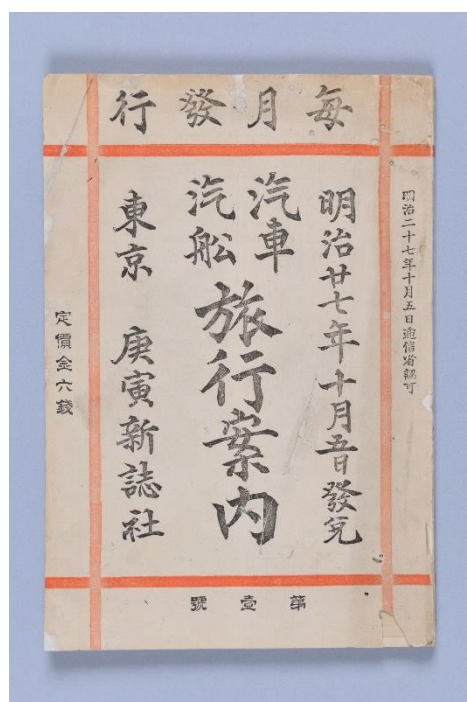 毎月發行
明治二十七年十月五日逓信省認可
明治廿七年十月五日發兌
汽車
汽舩
旅行案内
東京 庚寅新誌社
定價金六錢
第壹號